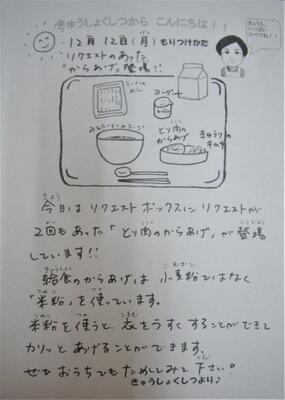 きゅうしょくしつから こんにちは!!
・12月12日(月)もりつけかた
リクエストのあった
"からあげ"登場!!
きょうも、
いっぱい
たべてね!!
ラーメンの
めん
ヨーグルト
みそラーメンのスープ
とり肉の
からあげ
きゅうりの
キムチ
今日はリクエストボックスにリクエストが
2回もあった「とり肉のからあげ」が登場
しています!!
給食のからあげは小麦粉ではなく
「米粉」を使っています。
米粉を使うと、衣をうすくすることができて
カリッとあげることができます。
ぜひおうちでもためしてみて下さい♪
きゅうしょくしつより♪